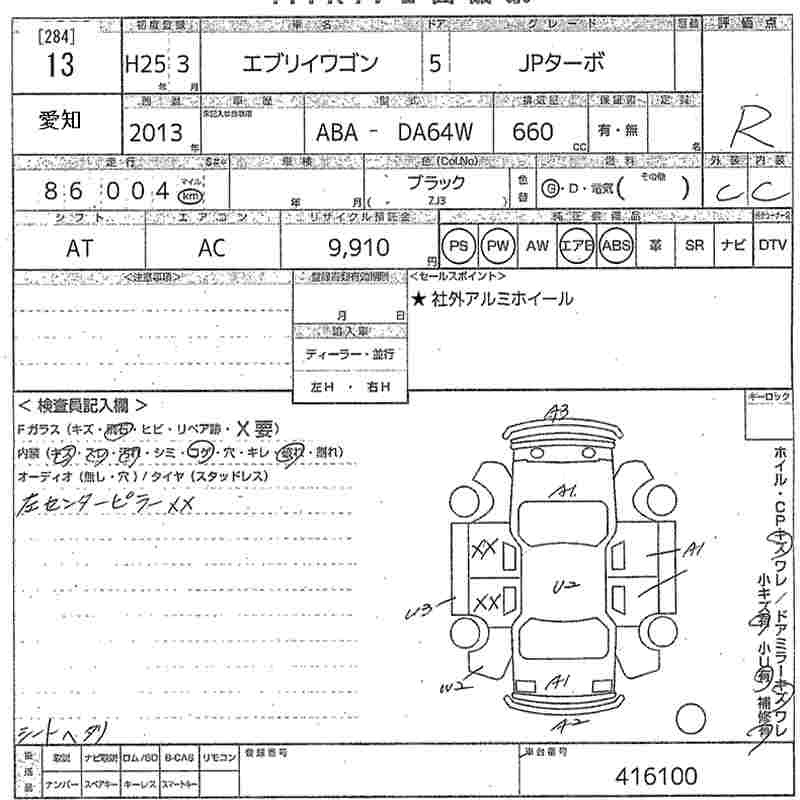 [284]
13
初度登録 車名 ドア グレード 評価点
H25 3 エブリイワゴン 5 JPターボ
年 月
愛知
車歴 型式 排気量 保証書 定員
2013 ABA - DA64W 660 有・無 R
年 CC 名
走行 車検 色(Col.No) 燃料 外装 内装
86 004 マイル km 年 月 ブラック 色替 G・D・電気( その他 ) C C
( - ZJ3 )
シフト エアコン リサイクル預託金 純正装備品
AT AC 9,910 円 PS PW AW エアB ABS 革 SR ナビ DTV
<注意事項> 登録書類有効期限 <セールスポイント>
★ 社外アルミホイール
月 日
輸入車
ディーラー・並行
左H ・ 右H
< 検査員記入欄 >
キーロック
Fガラス (キズ・飛石・ヒビ・リペア跡・X要)
内装 (キズ・スレ・汚れ・シミ・コゲ・穴・キレ・破れ・割れ)
オーディオ (無し・穴) / タイヤ (スタッドレス)
左センターピラーXX
A3
A1
XX
A1
XX
U2
U3
W2
A1
A2
ホイル・CPキズワレ/ドアミラーキズワレ
小キズ有 小U有 補修有
シートヘタリ
後送品 取説 ナビ取説 ロム/SD B-CAS リモコン 登録番号 車台番号
ナンバー スペアキー キーレス スマートキー
416100